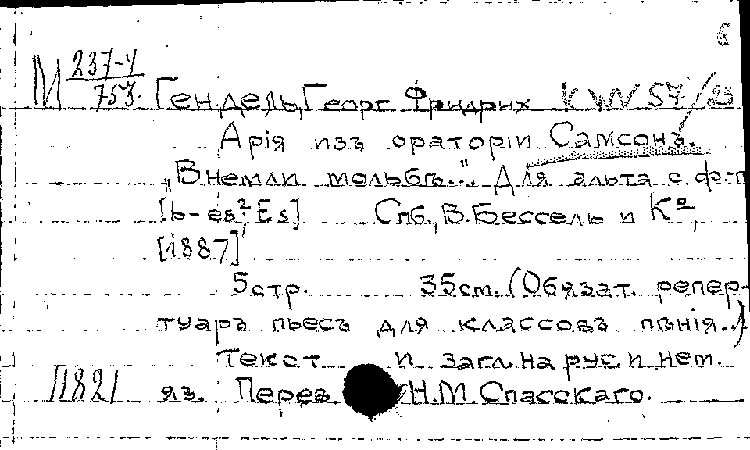 М 237-4/753. Гендель, Георг Фридрих KW 57/
Арія изъ ораторіи Самсонъ.
„Внемли мольбѣ..." Для альта с ф-п
[b-es²; Es] Спб., В. Бессель и Кº,
[1887]
5 стр. 35 см. (Обязат. репер-
туаръ пьесъ для классовъ пѣнія..)
Текст и загл. на рус и нем.
П821 яз. Перев. Н.М. Спасскаго.